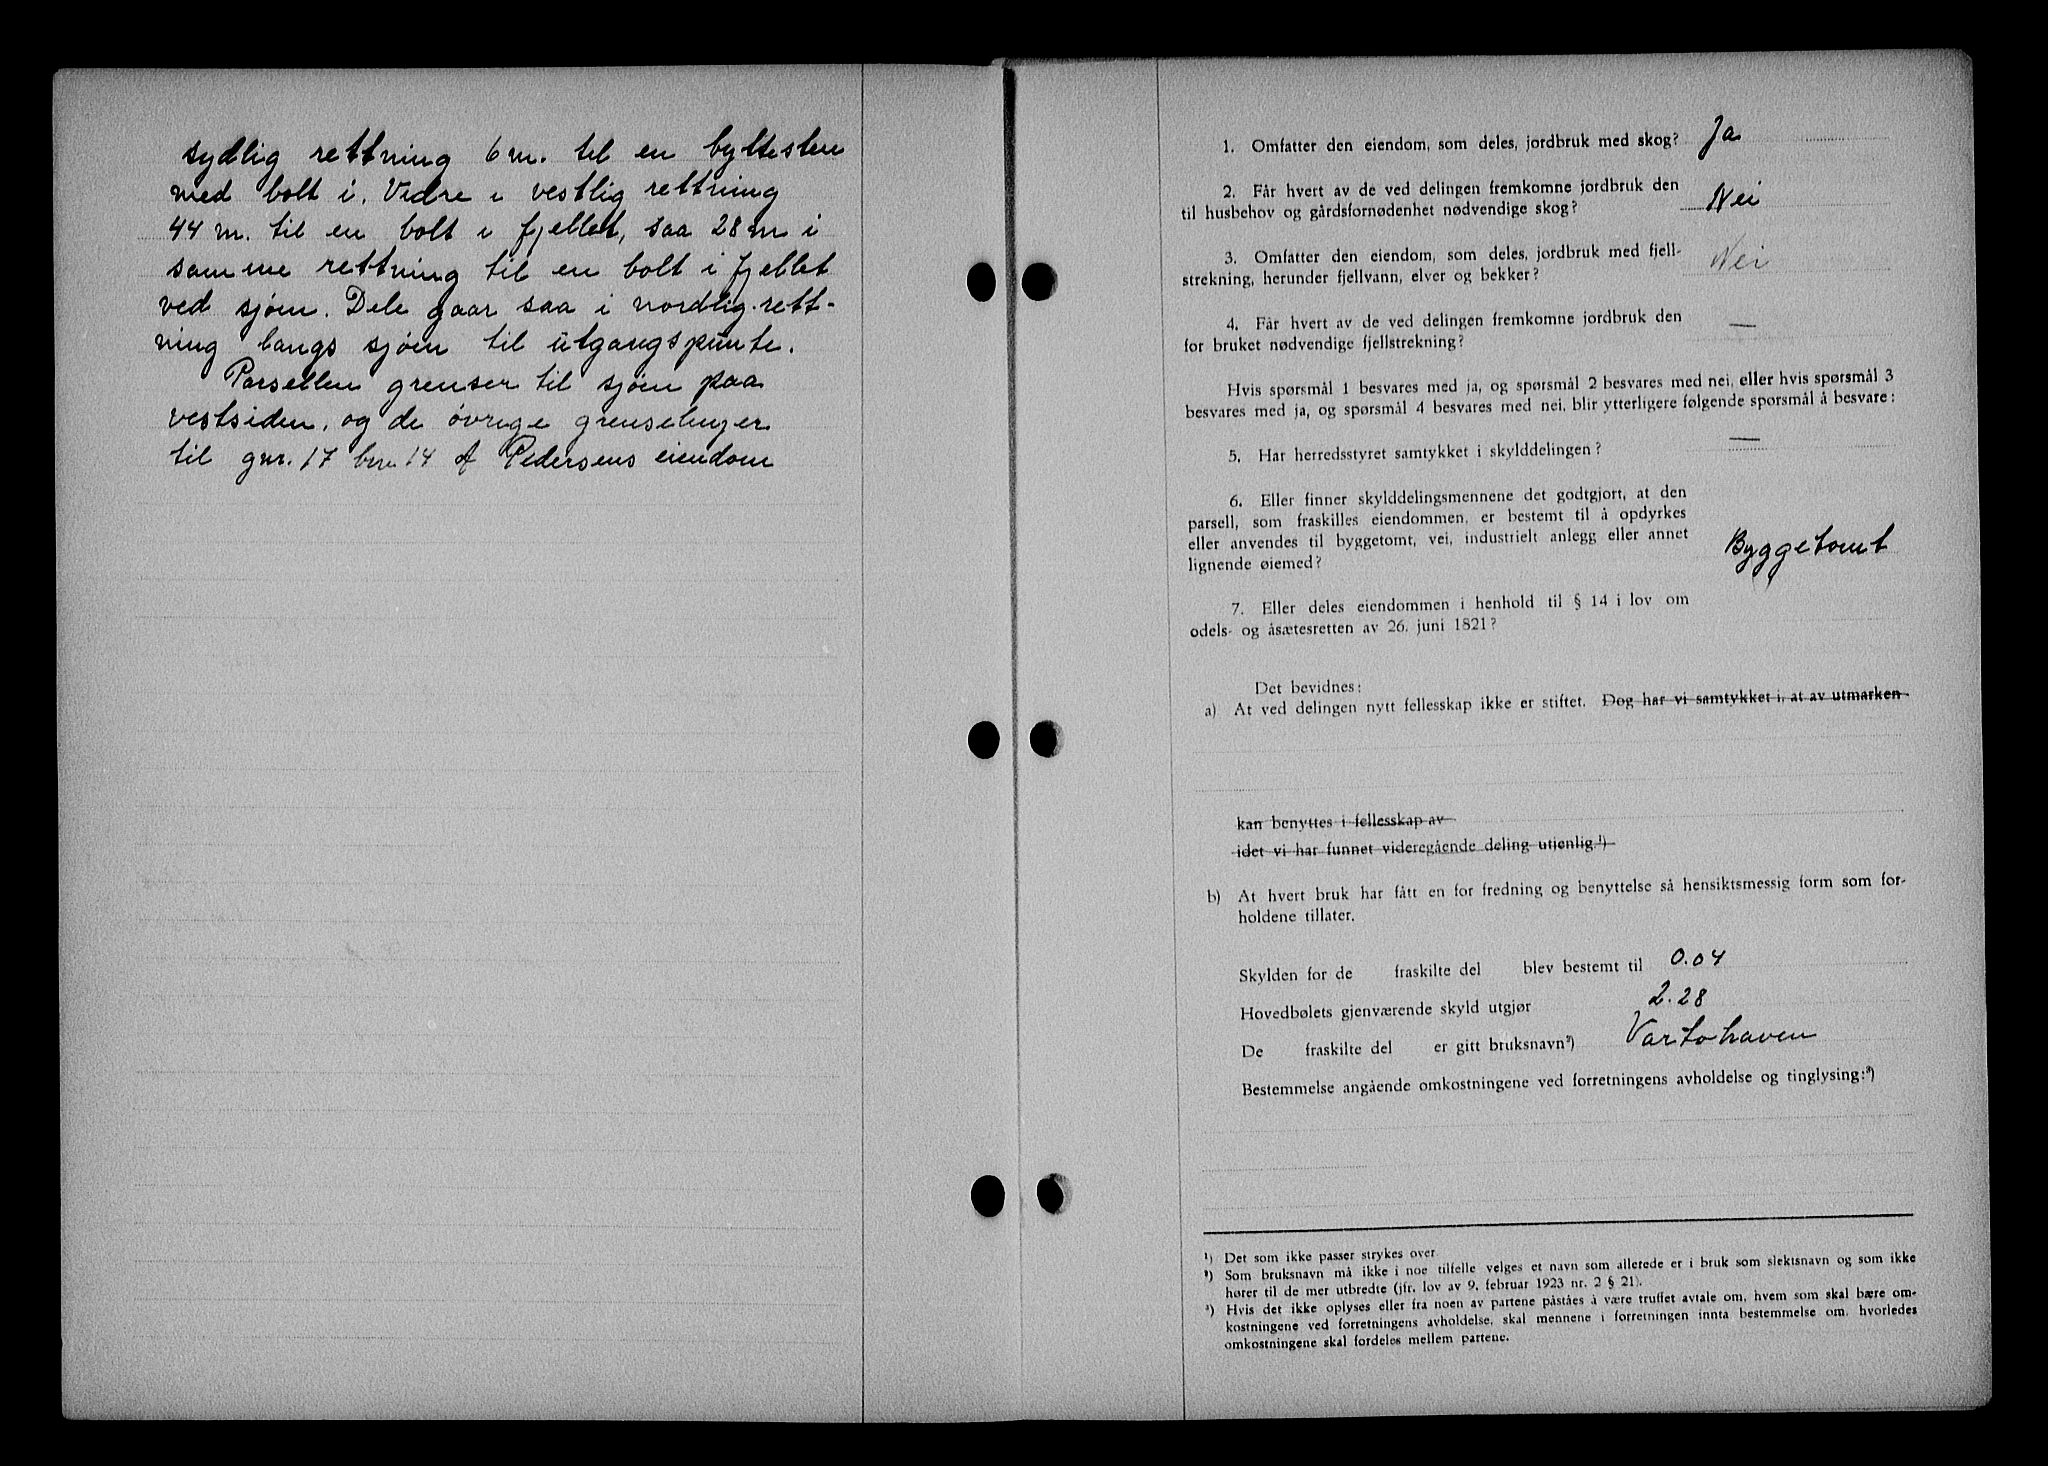 sydlig rettning 6 m. til en byttesten
med bolt i. Vidre i vestlig rettning
44 m. til en bolt i fjellet, saa 28 m i
samme rettning til en bolt i fjellet
ved sjøen. Dele gaar saa i nordlig rett-
ning langs sjøen til utgangspunte.
Parsellen grenser til sjøen paa
vestsiden, og de øvrige grenselinjer
til gnr. 17 bnr. 14 af Pedersens eiendom
1. Omfatter den eiendom, som deles, jordbruk med skog? Ja
2. Får hvert av de ved delingen fremkomne jordbruk den
til husbehov og gårdsfornødenhet nødvendige skog? Nei
3. Omfatter den eiendom, som deles, jordbruk med fjell-
strekning, herunder fjellvann, elver og bekker? Nei
4. Får hvert av de ved delingen fremkomne jordbruk den
for bruket nødvendige fjellstrekning? —
Hvis spørsmål 1 besvares med ja, og spørsmål 2 besvares med nei, eller hvis spørsmål 3
besvares med ja, og spørsmål 4 besvares med nei, blir ytterligere følgende spørsmål å besvare:
5. Har herredsstyret samtykket i skylddelingen? —
6. Eller finner skylddelingsmennene det godtgjort, at den
parsell, som fraskilles eiendommen, er bestemt til å opdyrkes
eller anvendes til byggetomt, vei, industrielt anlegg eller annet
lignende øiemed? Byggetomt
7. Eller deles eiendommen i henhold til § 14 i lov om
odels- og åsætesretten av 26. juni 1821?
Det bevidnes:
a) At ved delingen nytt fellesskap ikke er stiftet. Dog har vi samtykket i, at av utmarken
kan benyttes i fellesskap av
idet vi har funnet videregående deling utjenlig.¹)
b) At hvert bruk har fått en for fredning og benyttelse så hensiktsmessig form som for-
holdene tillater.
Skylden for de fraskilte del blev bestemt til 0.04
Hovedbølets gjenværende skyld utgjør 2.28
De fraskilte del er gitt bruksnavn²) Vartohaven
Bestemmelse angående omkostningene ved forretningens avholdelse og tinglysing:³)
¹) Det som ikke passer strykes over.
²) Som bruksnavn må ikke i noe tilfelle velges et navn som allerede er i bruk som slektsnavn og som ikke
hører til de mer utbredte (jfr. lov av 9. februar 1923 nr. 2 § 21).
³) Hvis det ikke oplyses eller fra noen av partene påståes å være truffet avtale om, hvem som skal bære om-
kostningene ved forretningens avholdelse, skal mennene i forretningen innta bestemmelse om, hvorledes
omkostningene skal fordeles mellem partene.